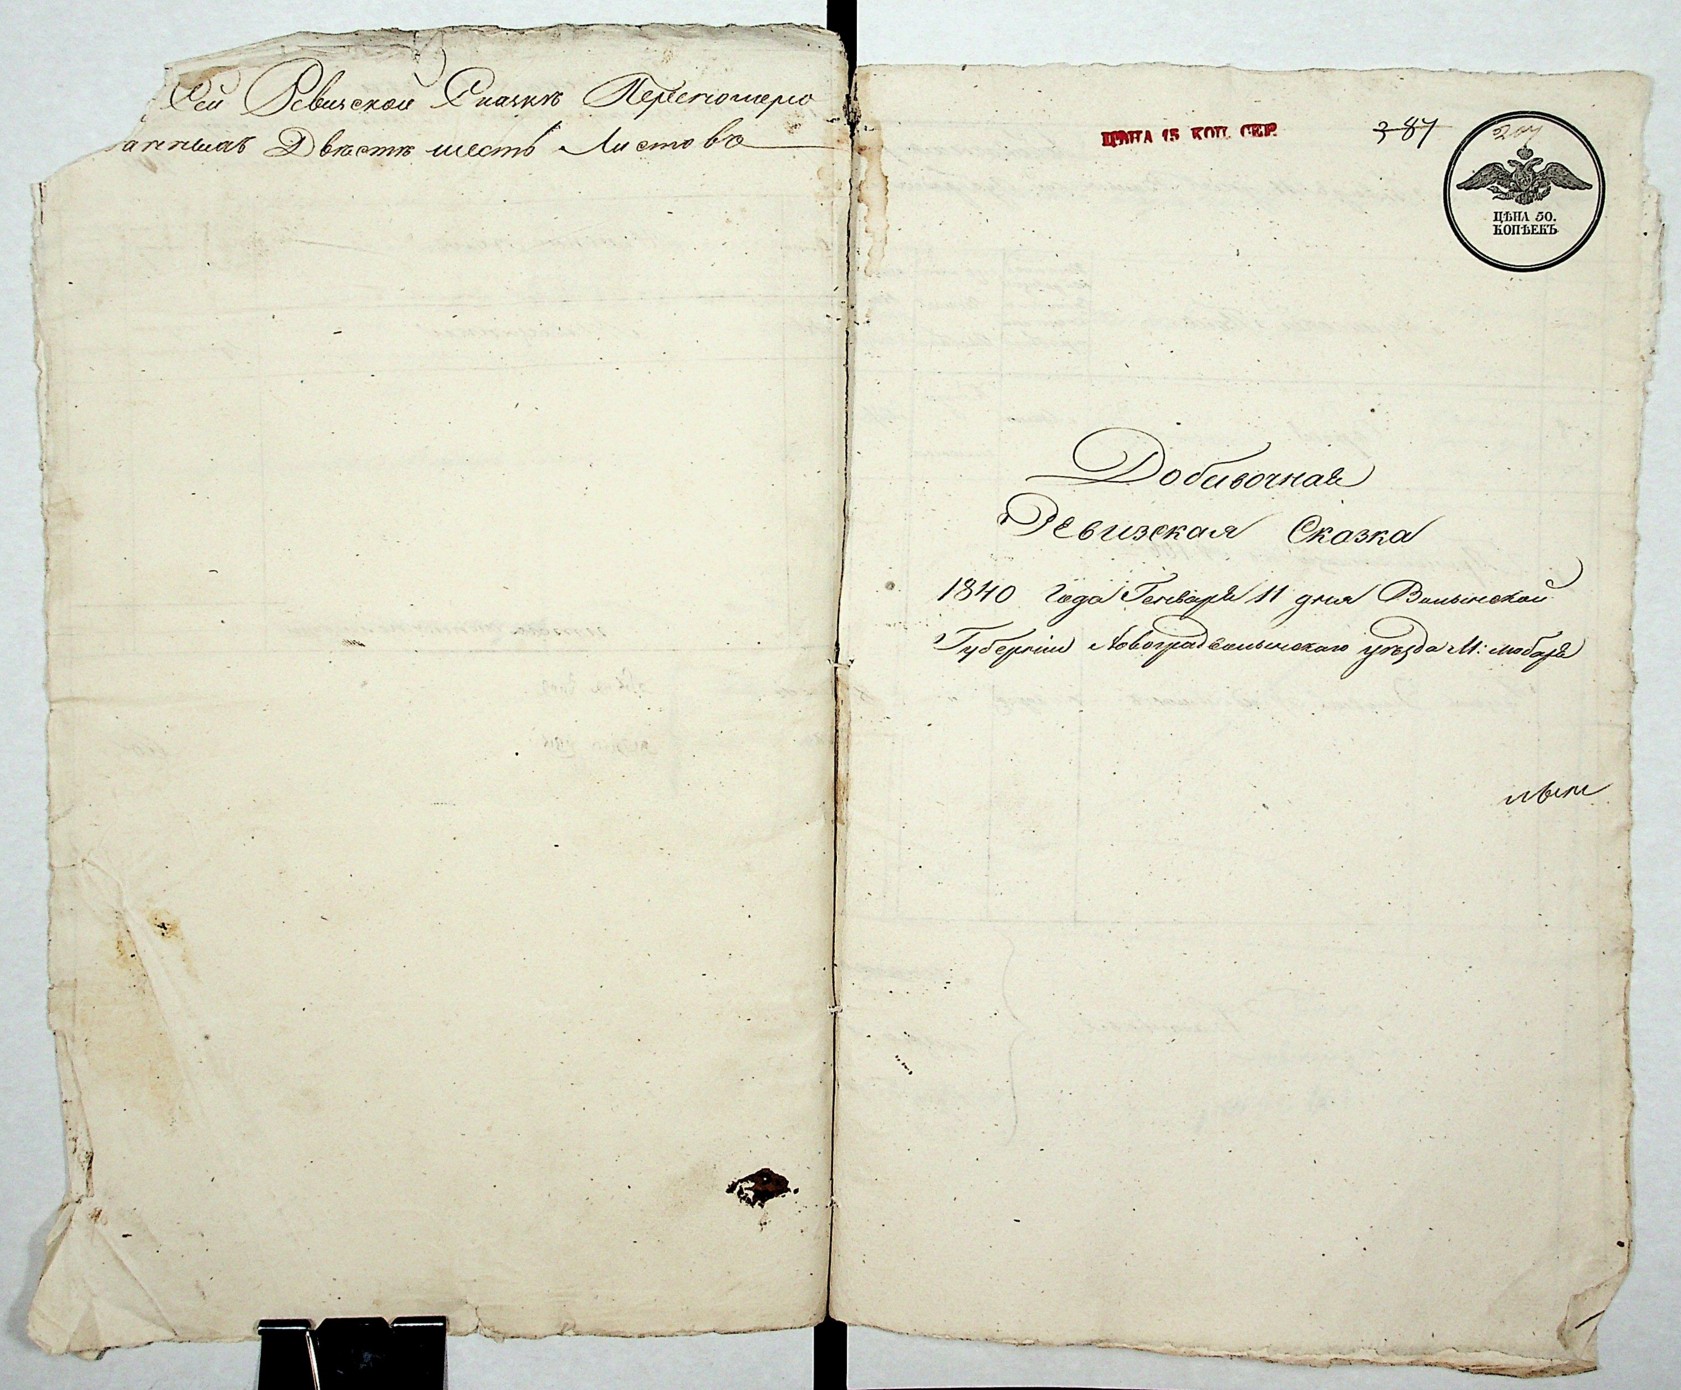 Сей Ревизской Сказкѣ Перетомеро
ванныхъ Двѣстѣ шесть Листовъ
ЦѢНА 15 КОП. СЕР.
387
207
ЦѢНА 50.
КОПѢЕКЪ
Добавочная
Ревизская Сказка
1840 года Генваря 11 дня Волынской
Губерніи Новоградволынскаго уѣзда М: Любара